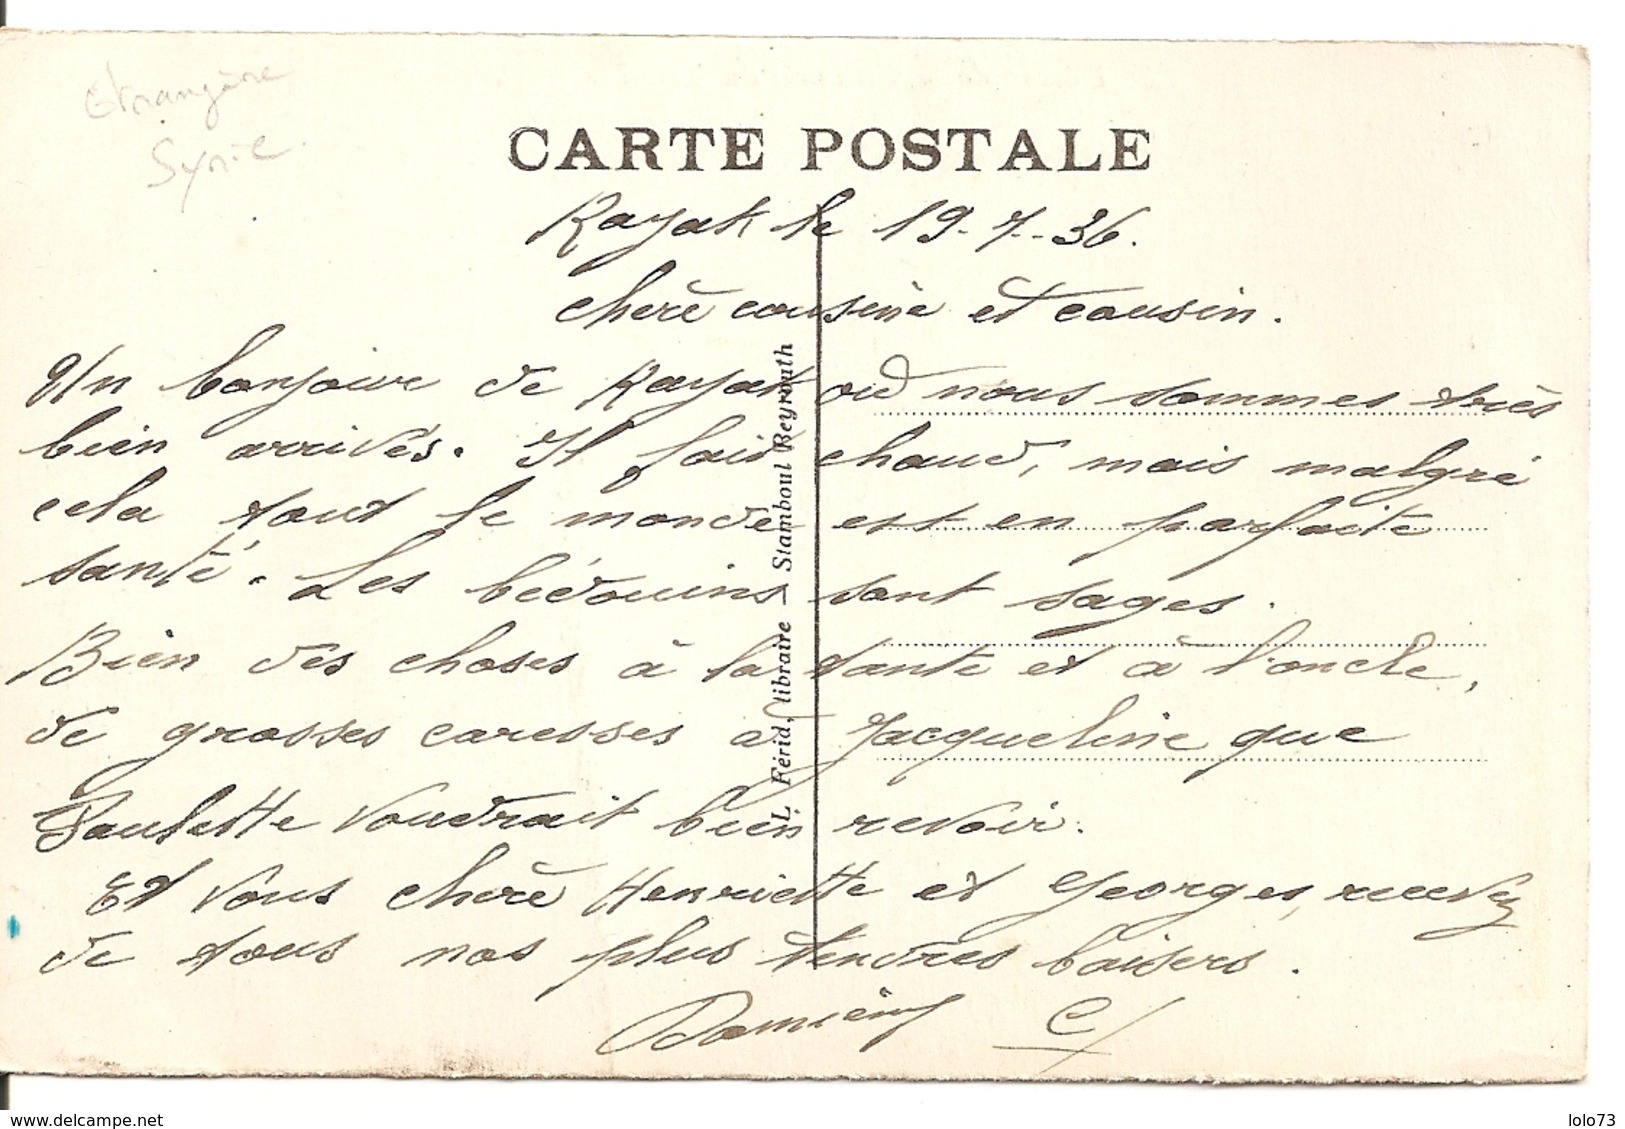 Etrangère
Syrie
CARTE POSTALE
Rayak le 19-7-36.
Chère cousine et cousin.
Un bonjour de Rayak où nous sommes très
bien arrivés. Il fait chaud, mais malgré
cela tout le monde est en parfaite
santé. Les bédouins sont sages.
Bien des choses à la tante et à l'oncle,
de grosses caresses a Jacqueline que
Paulette voudrait bien revoir.
Et vous chère Henriette et Georges, recevez
de tous nos plus tendres baisers.
L. Férid, libraire — Stamboul Beyrouth
www.delcampe.net
lolo73